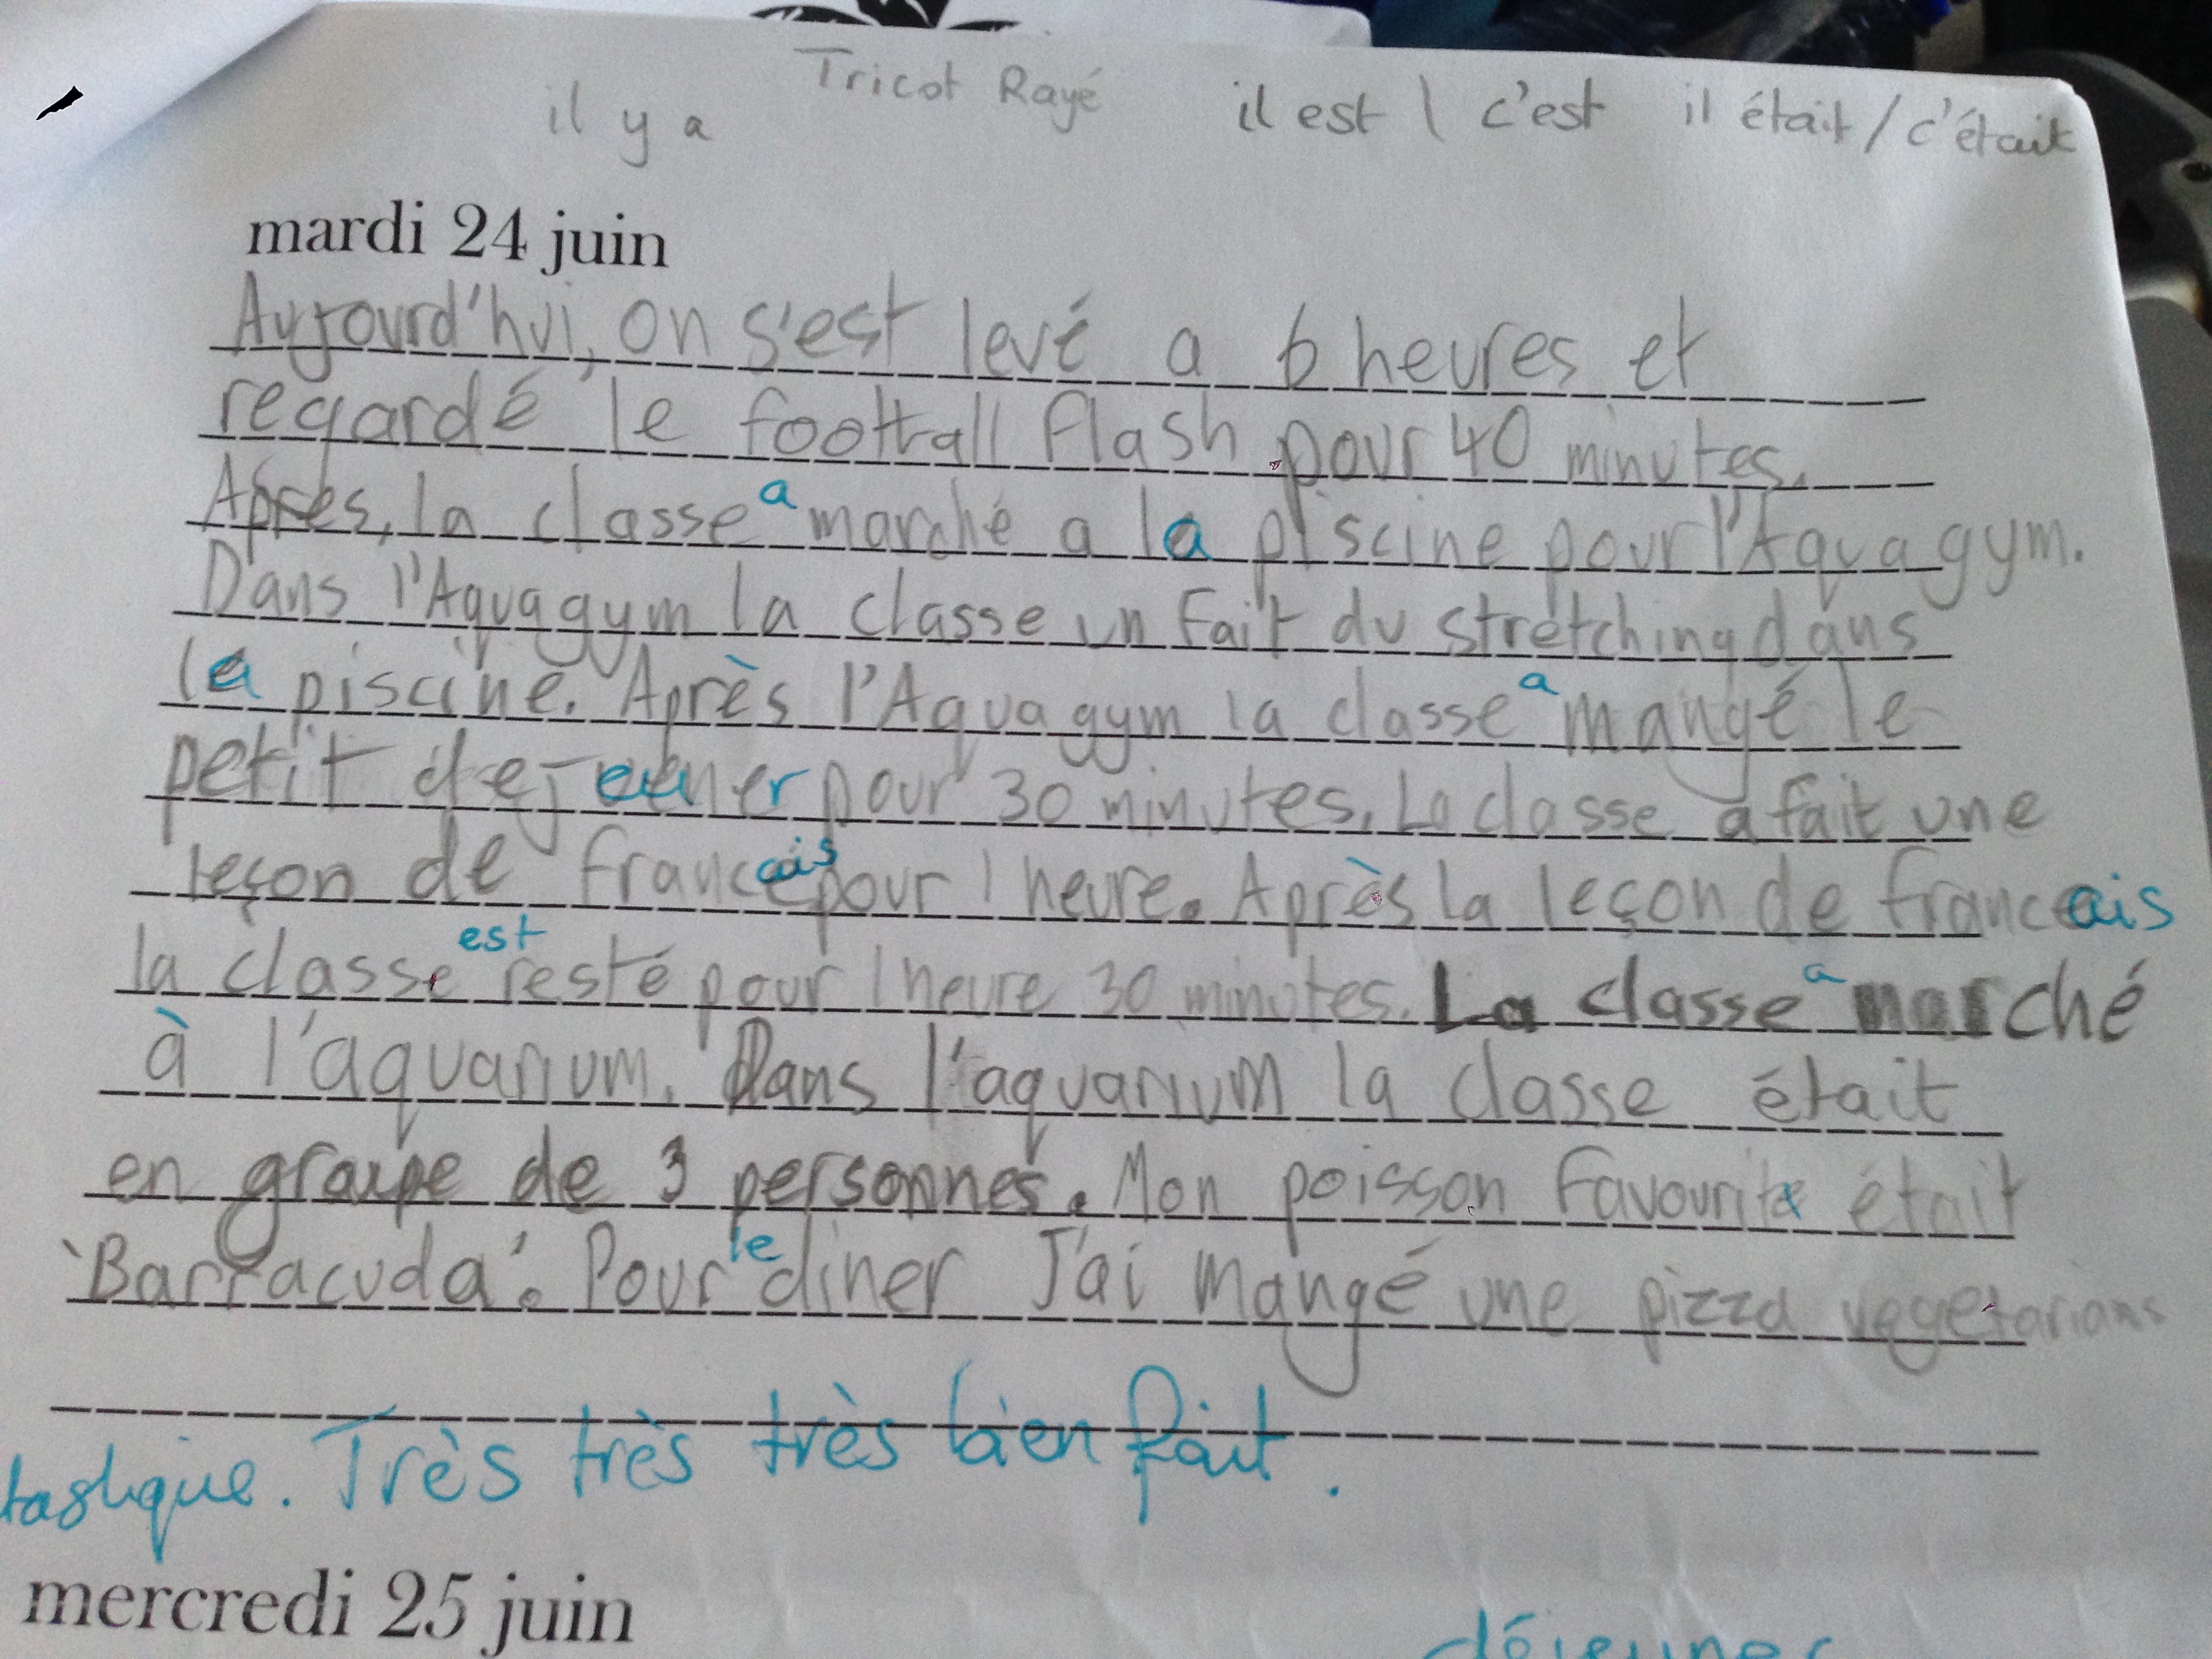 Tricot Rayé
il y a il est \ c'est il était / c'était
mardi 24 juin
Aujourd'hui, on s'est levé a 6 heures et
regardé le foottall flash pour 40 minutes.
Après, la classe a marché a la piscine pour l'Aquagym.
Dans l'Aquagym la classe un fait du stretching dans
la piscine. Après l'Aquagym la classe a mangé le
petit dejeuner pour 30 minutes. La classe a fait une
leçon de francais pour 1 heure. Après la leçon de francais
la classe est resté pour 1 heure 30 minutes. La classe a marché
à l'aquarium. Dans l'aquarium la classe était
en groupe de 3 personnes. Mon poisson favourite était
'Barracuda'. Pour le diner J'ai mangé une pizza vegetarians
tastique. Très très très bien fait.
mercredi 25 juin
déjeuner